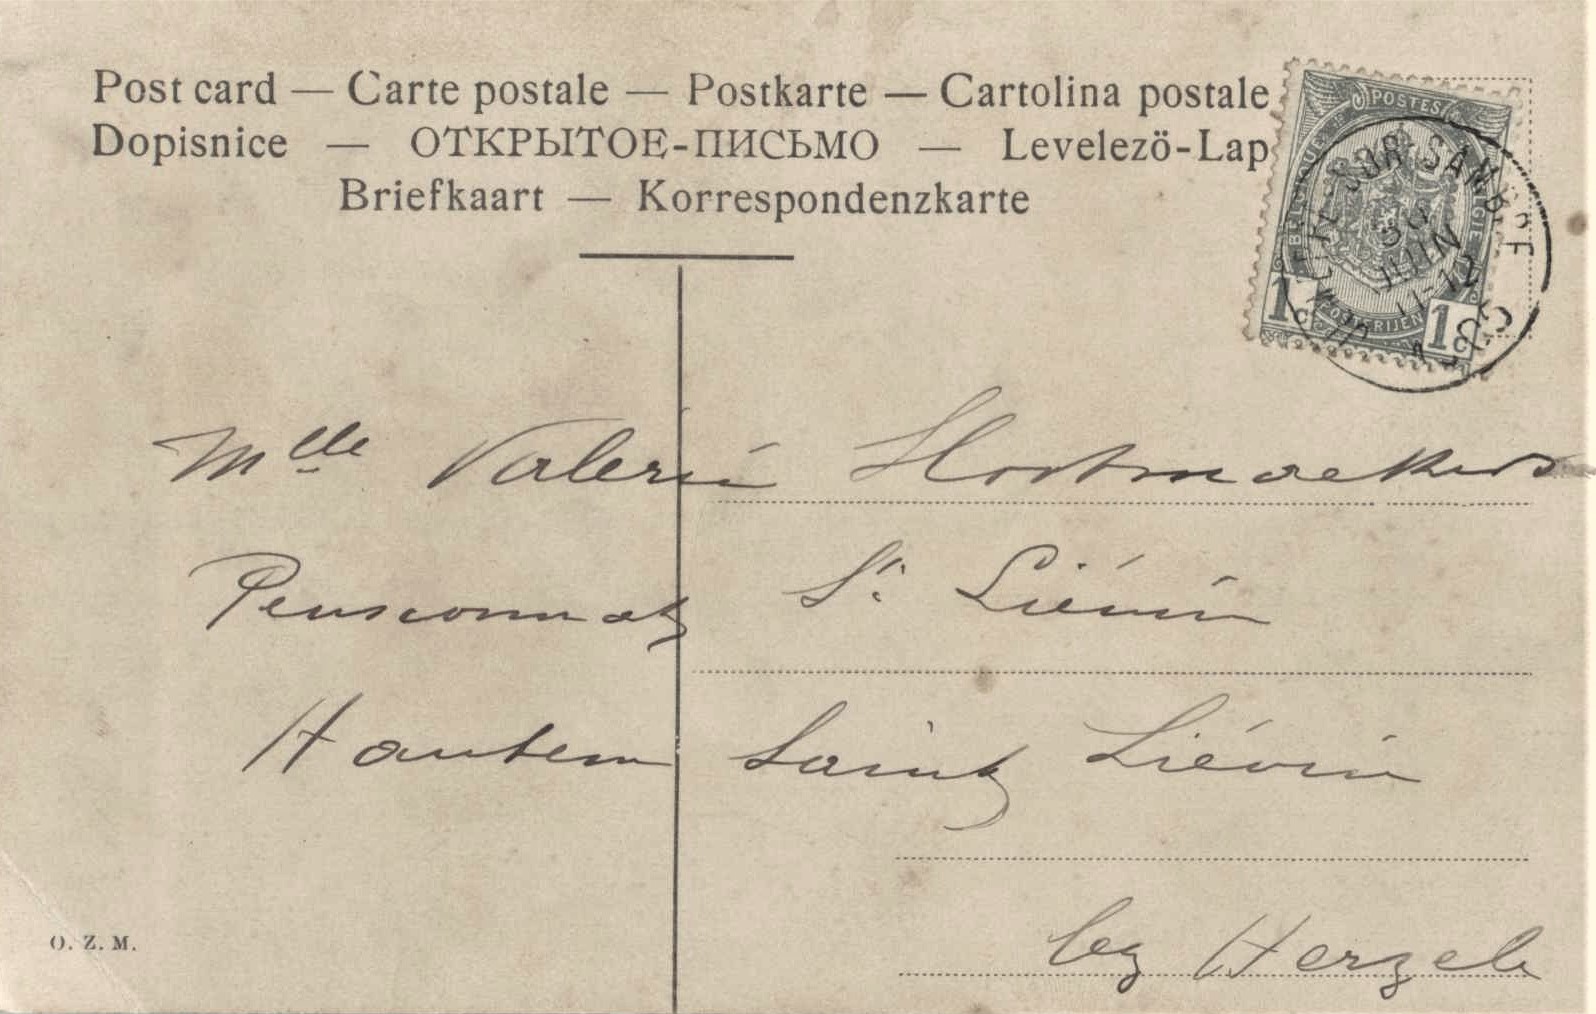 Post card — Carte postale — Postkarte — Cartolina postale
Dopisnice — ОТКРЫТОЕ-ПИСЬМО — Levelezö-Lap
Briefkaart — Korrespondenzkarte
POSTES
BELGIQUE BELGIË
POSTERIJEN
1c 1c
30
JUIN
11-12
Mlle Valerie
Pensionnat St Liévin
Hautem Saint Liévin
by Herzele
O. Z. M.